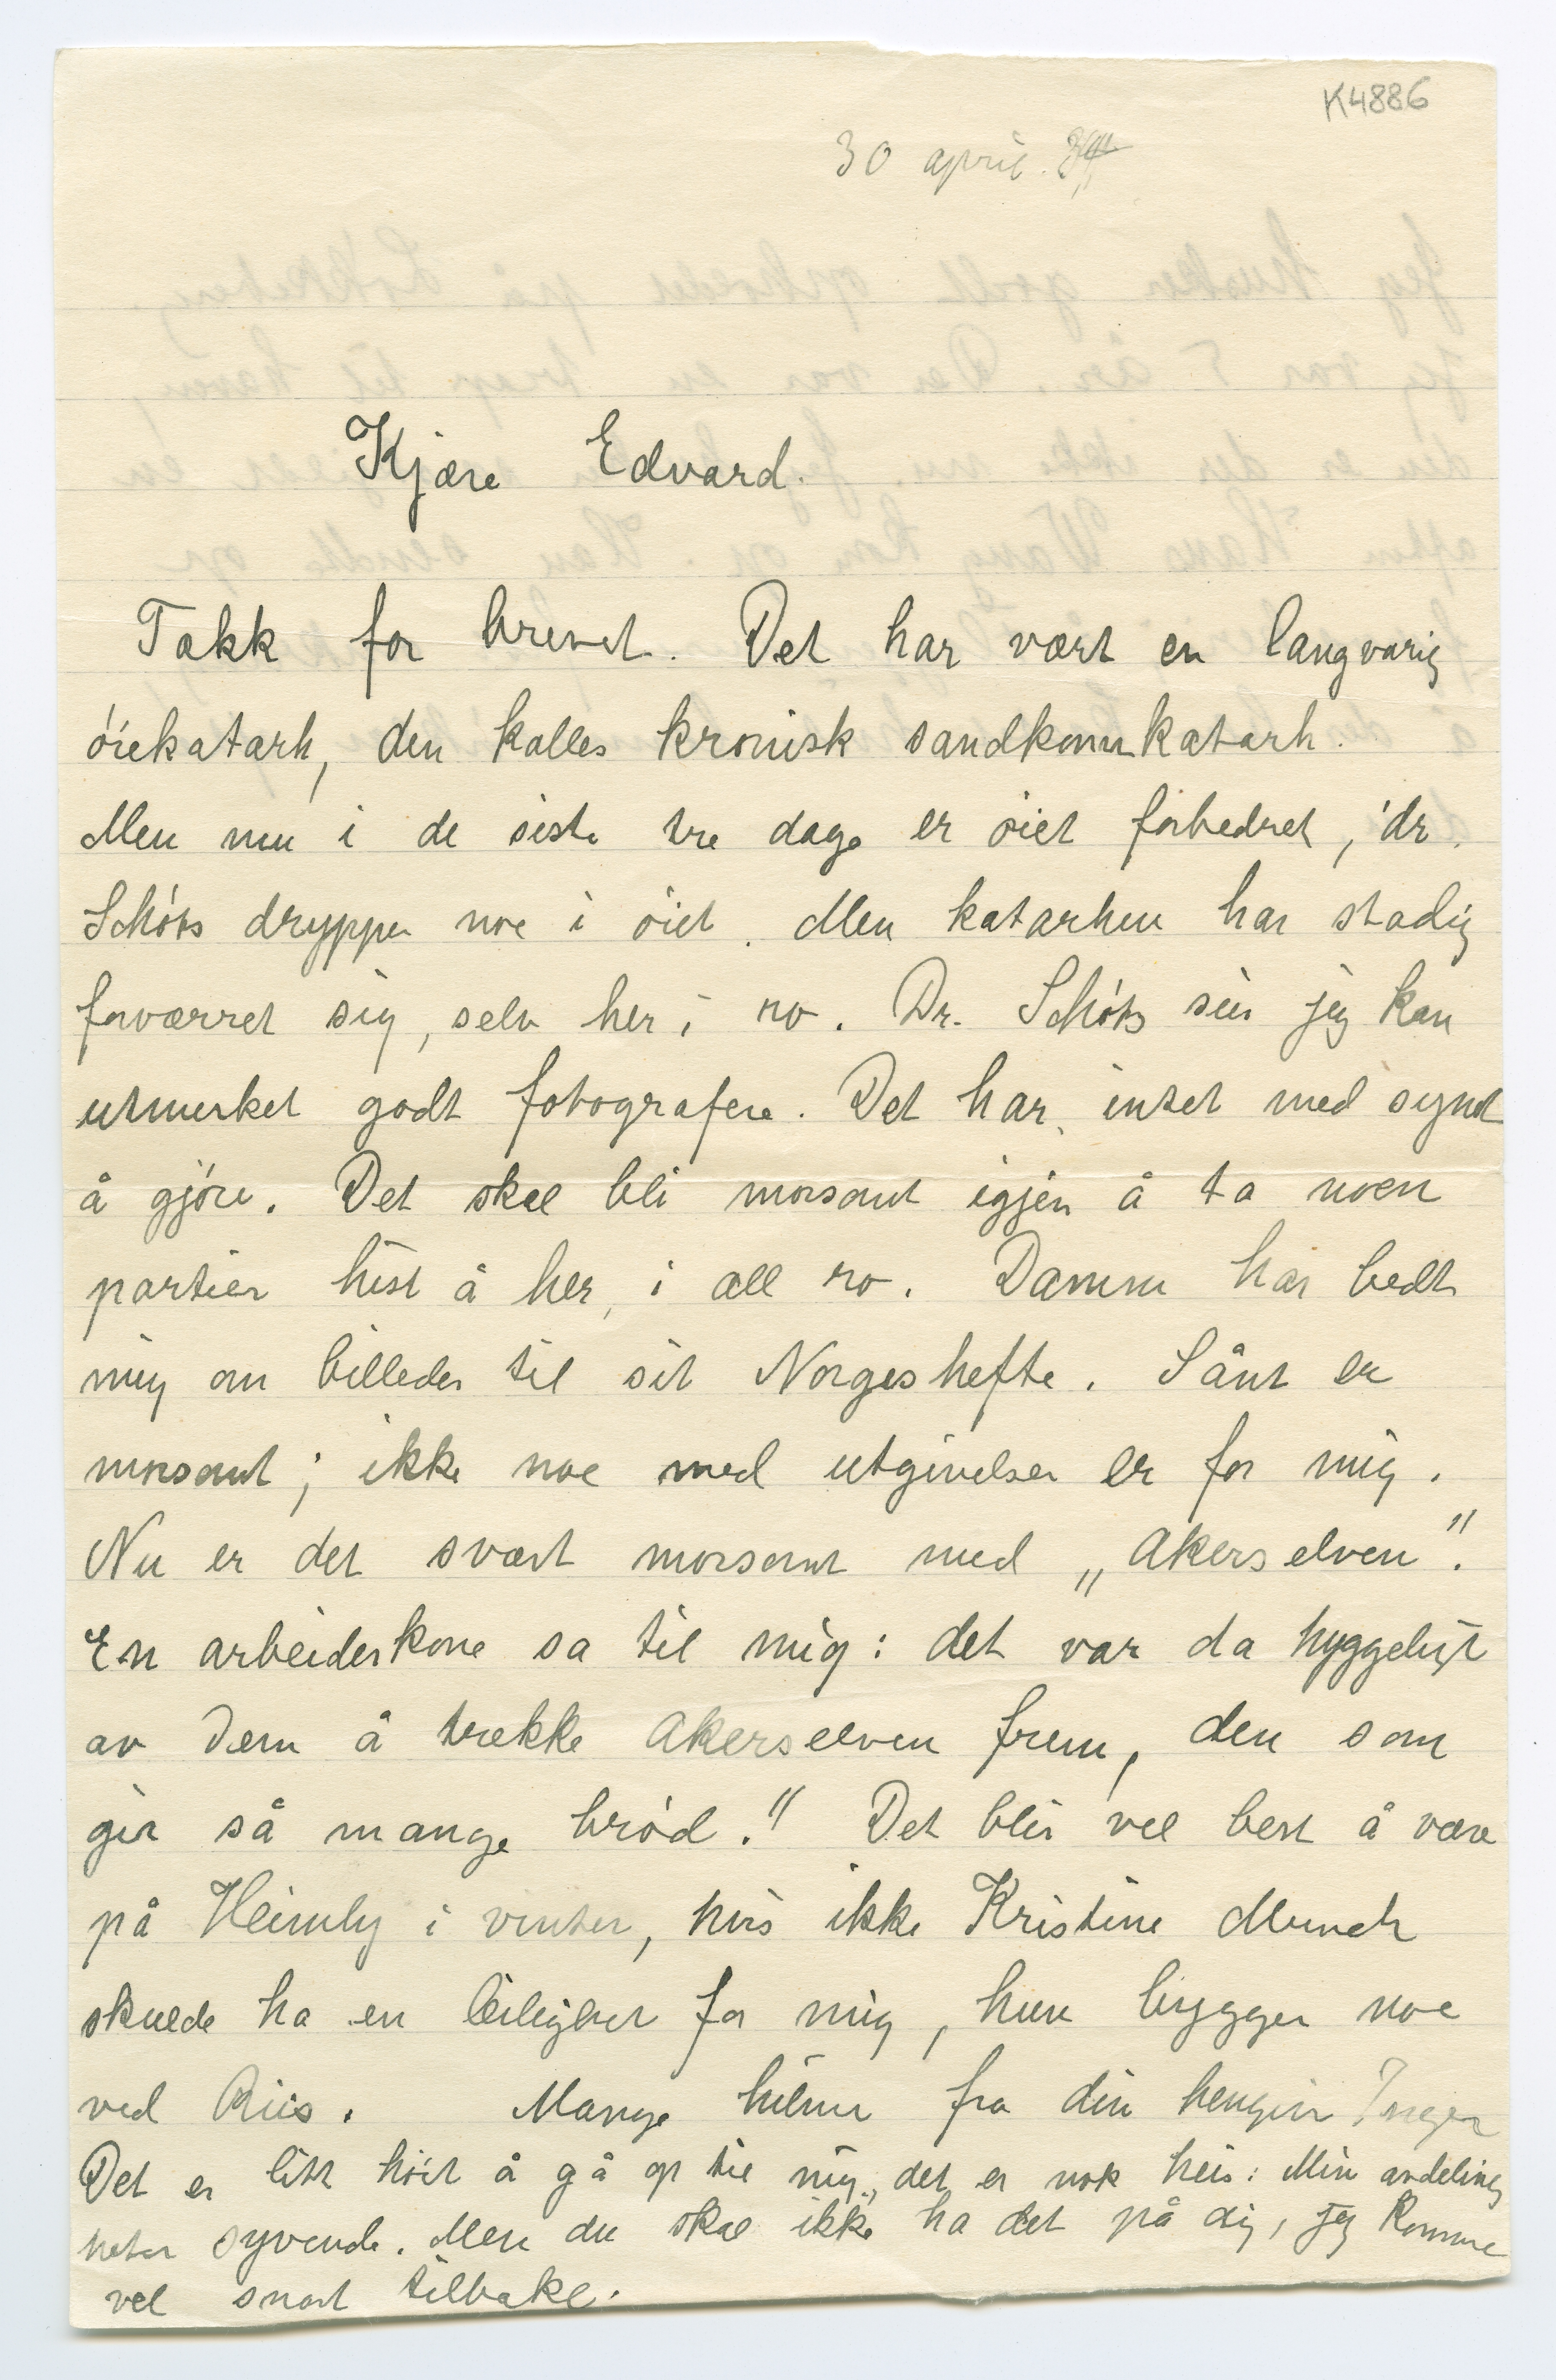 K4886
30 april. 34
Kjære Edvard.
Takk for brevet. Det har vært en langvarig
óiekatarh, den kalles kronisk sandkornkatarh.
Men nu i de siste tre dage er óiet forbedret, dr.
Schiótz drypper noe i óiet. Men katarhen har stadig
forværret sig, selv her i ro. Dr. Schiótz sier jeg kan
utmerket godt fotografere. Det har intet med synet
å gjóre. Det skal bli morsomt igjen å ta noen
partier hist å her, i all ro. Damm har bedt
mig om billeder til sit Norgeshefte. Sånt er
morsomt; ikke noe med utgivelser er for mig.
Nu er det svært morsomt med „Akerselven".
En arbeiderkone sa til mig: det var da hyggeligt
av Dem å trekke Akerselven frem, den som
gir så mange bród!" Det blir vel best å være
på Heimly i vinter, hvis ikke Kristine Munch
skulde ha en leilighet for mig, hun bygger noe
ved Riis. Mange hilsner fra din hengivne Inger
Det er litt hóit å gå op til mig, det er nok heis: Min avdeling
heter syvende. Men du skal ikke ha det på dig, jeg kommer
vel snart tilbake.